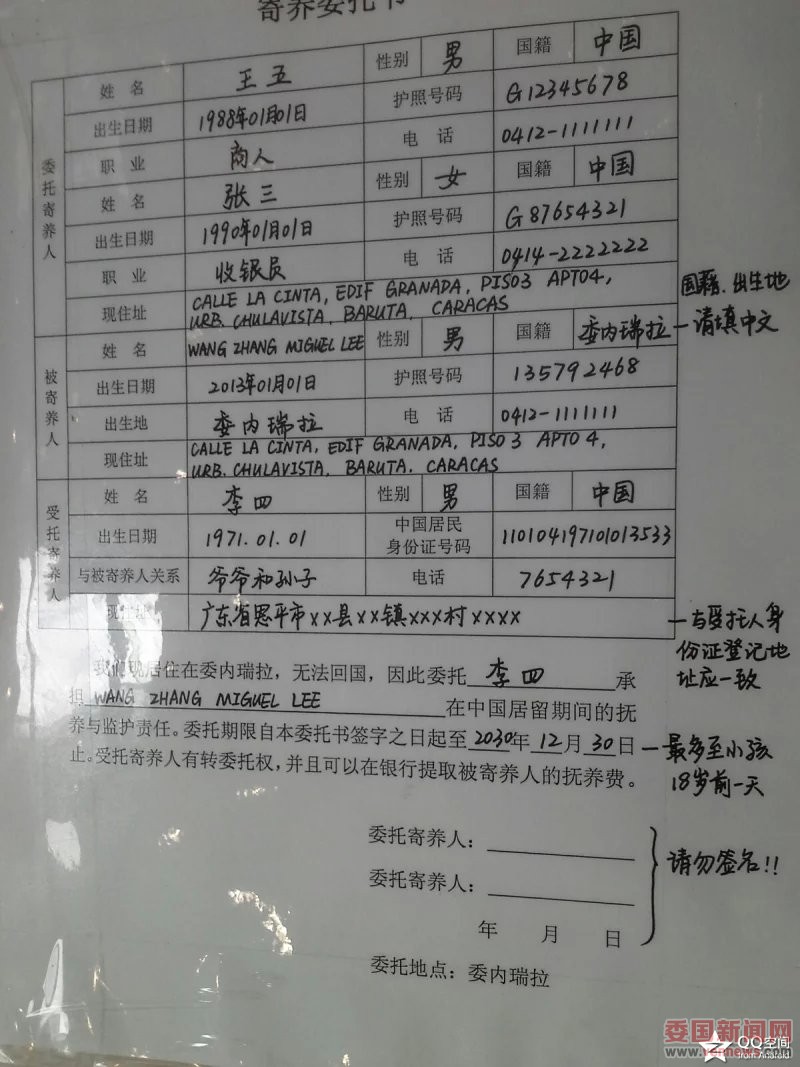 寄养委托书
委托寄养人
姓 名 王五 性别 男 国籍 中国
出生日期 1988年01月01日 护照号码 G12345678
职 业 商人 电 话 0412-1111111
姓 名 张三 性别 女 国籍 中国
出生日期 1990年01月01日 护照号码 G87654321
职 业 收银员 电 话 0414-2222222
现住址 CALLE LA CINTA, EDIF GRANADA, PISO3 APTO4,
URB. CHULAVISTA, BARUTA, CARACAS
国籍、出生地
—请填中文
被寄养人
姓 名 WANG ZHANG MIGUEL LEE 性别 男 国籍 委内瑞拉
出生日期 2013年01月01日 护照号码 135792468
出生地 委内瑞拉 电 话 0412-1111111
现住址 CALLE LA CINTA, EDIF GRANADA, PISO 3 APTO 4,
URB. CHULAVISTA, BARUTA, CARACAS
受托寄养人
姓 名 李四 性别 男 国籍 中国
出生日期 1971.01.01 中国居民
身份证号码 110104197101013533
与被寄养人关系 爷爷和孙子 电话 7654321
现住址 广东省恩平市××县××镇×××村××××
—与受托人身
份证登记地
址应一致
我们现居住在委内瑞拉，无法回国，因此委托 李四 承
担 WANG ZHANG MIGUEL LEE 在中国居留期间的抚
养与监护责任。委托期限自本委托书签字之日起至 2030年 12月 30日
止。受托寄养人有转委托权，并且可以在银行提取被寄养人的抚养费。
—最多至小孩
18岁前一天
委托寄养人：
委托寄养人：
年 月 日
请勿签名!!
委托地点：委内瑞拉
委国新闻网
www.vennews.com
QQ空间
from Android